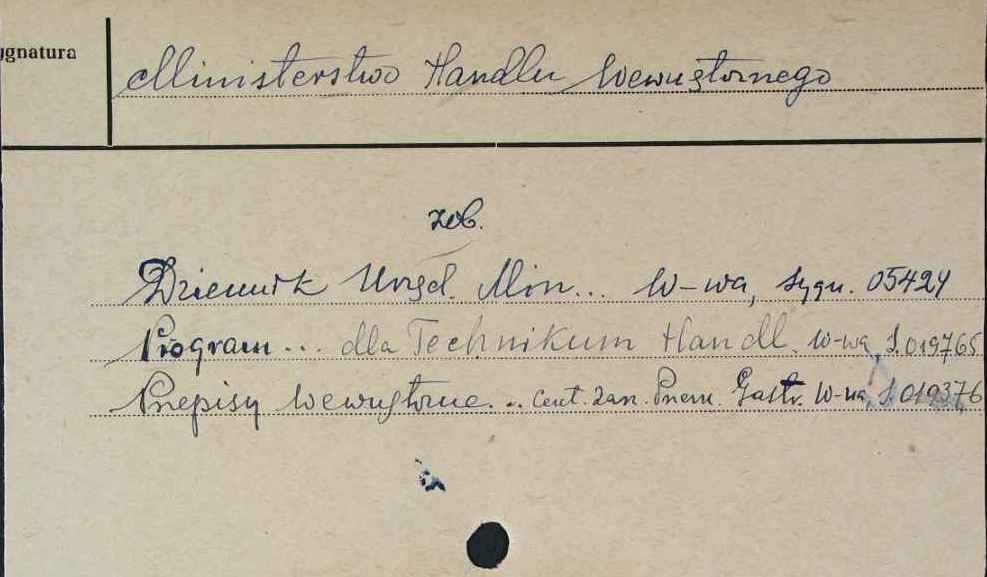 ygnatura
Ministerstwo Handlu Wewnętrznego
zob.
Dziennik Urzęd. Min... W-wa, sygn. 05424
Program... dla Technikum Handl. W-wa, S. 019765
Przepisy wewnętrzne... Cent. Zarz. Przem. Gastr. W-wa, S. 019376